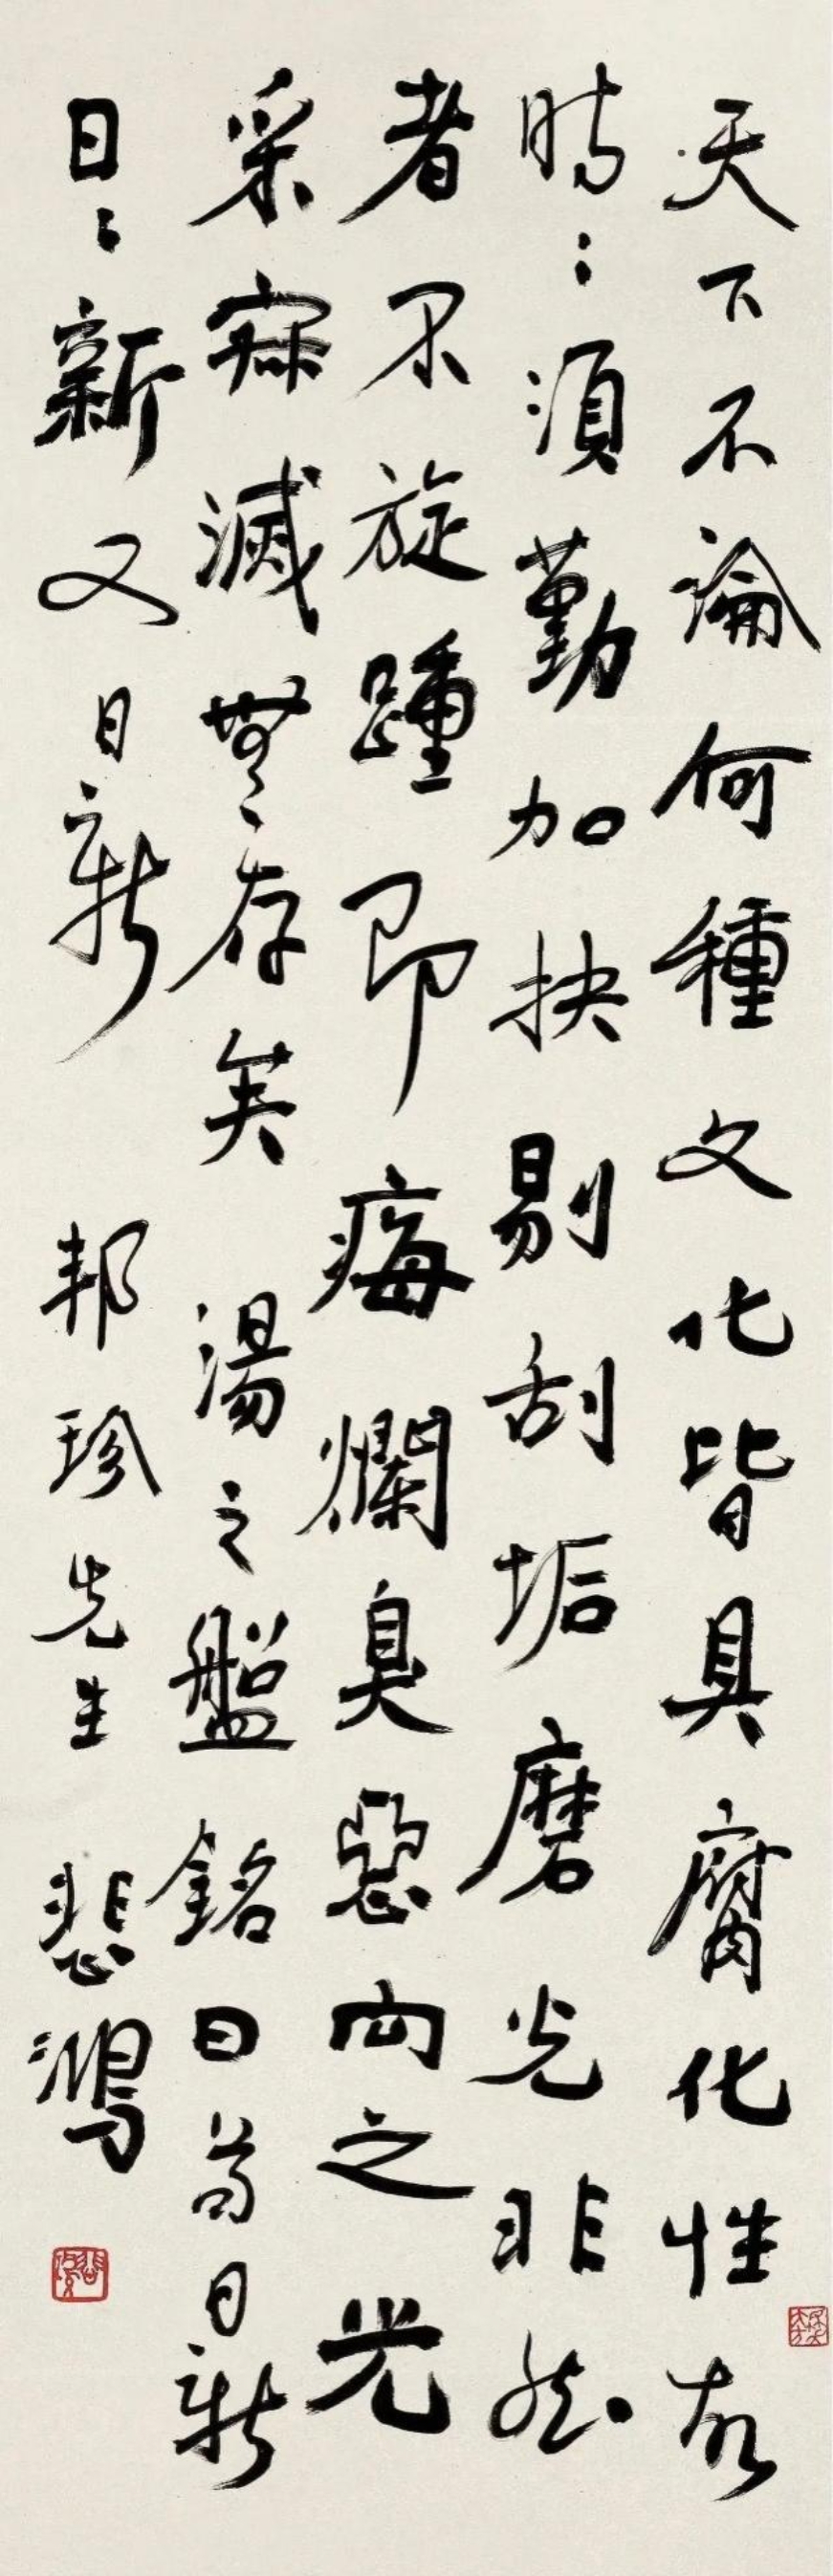 天下不論何種文化皆具腐化性故
時〻須勤加抉剔刮垢磨光非然
者不旋踵即痗爛臭惡向之光
采寂滅無存矣 湯之盤銘曰苟日新
日〻新又日新 邦珍先生 悲鴻